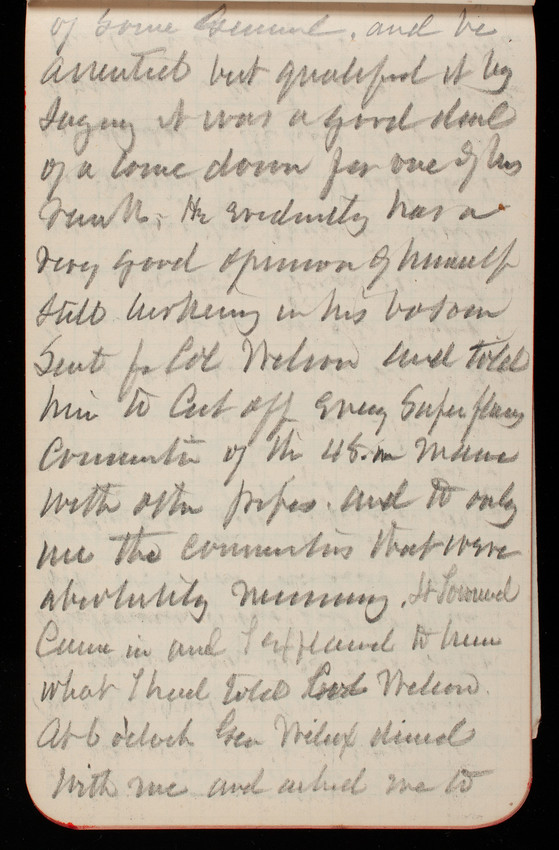 of some General, and he
assented but qualified it by
saying it was a good deal
of a come down for one of his
rank, He evidently has a
very good opinion of himself
still lurking in his bosom
Sent for Col Wilson and told
him to cut off every superfluous
connection of the 48 in main
with other pipes. and to only
use the connections that were
absolutely necessary. Lt
Came in and I explained to him
what I had told Wilson.
At 6 o'clock Gen Wilcox dined
with me and asked me to